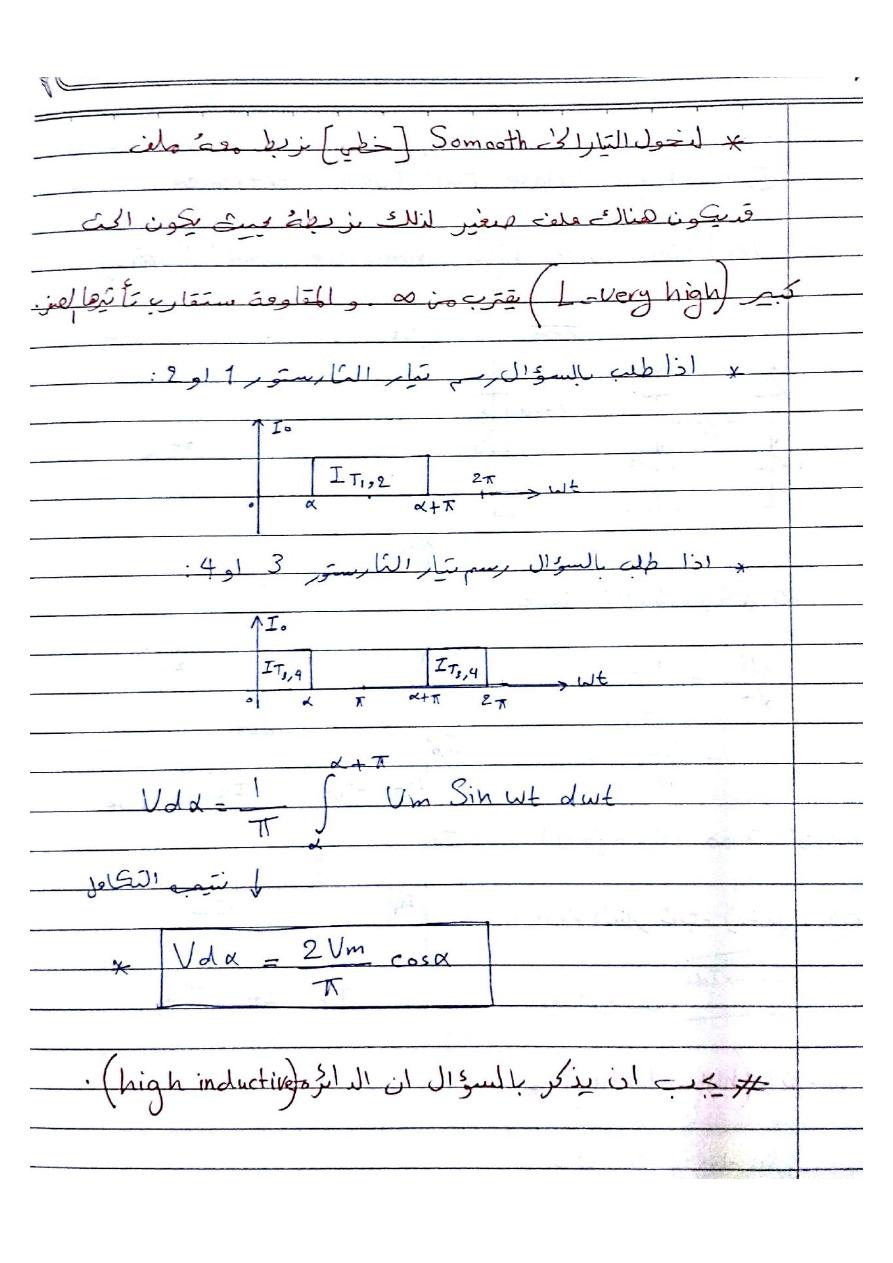 * لدخول التيار الى Somooth [خطي] نربط معهُ ملف
قد يكون هناك ملف صغير لذلك نربطهُ بحيث يكون الحث
كبير (L-very high) يقترب من ∞ و المقاومة ستقارب تأثيرها لصفر.
* اذا طلب بالسؤال رسم تيار الثايرستور 1 او 2 :
I₀
I T₁,₂
0 α α+π 2π → wt
* اذا طلب بالسؤال رسم تيار الثايرستور 3 او 4 :
I₀
I T₃,₄ I T₃,₄
0 α π α+π 2π → wt
Vdα = 1/π ∫_α^{α+π} Vm Sin wt dwt
↓ نتيجة التكامل
* Vdα = 2Vm/π cosα
# يجب ان يذكر بالسؤال ان الدائرة (high inductive) .